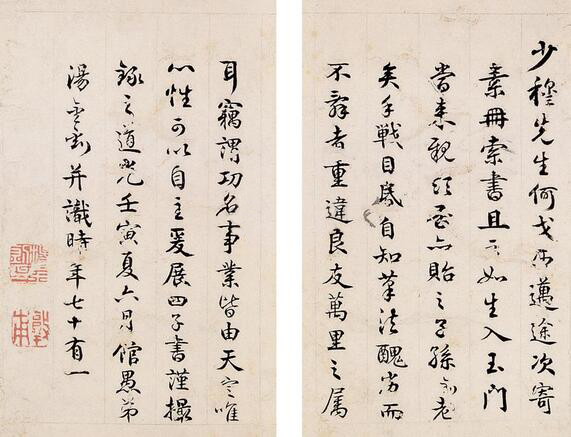 少穆先生何戈仍邁途次寄
素冊索書且云如生入玉門
當奉親頌至亦貽之子孫
矣手戰目昏自知筆法醜劣而
不辭者重違良友萬里之屬
耳竊謂功名事業皆由天定唯
心性可以自主爰展四子書謹撮
錄之道光壬寅夏六月館愚弟
湯金釗并識時年七十有一